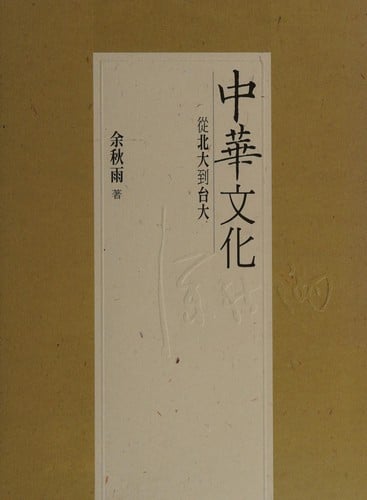 中華文化
從北大到台大
余秋雨 著
余秋雨